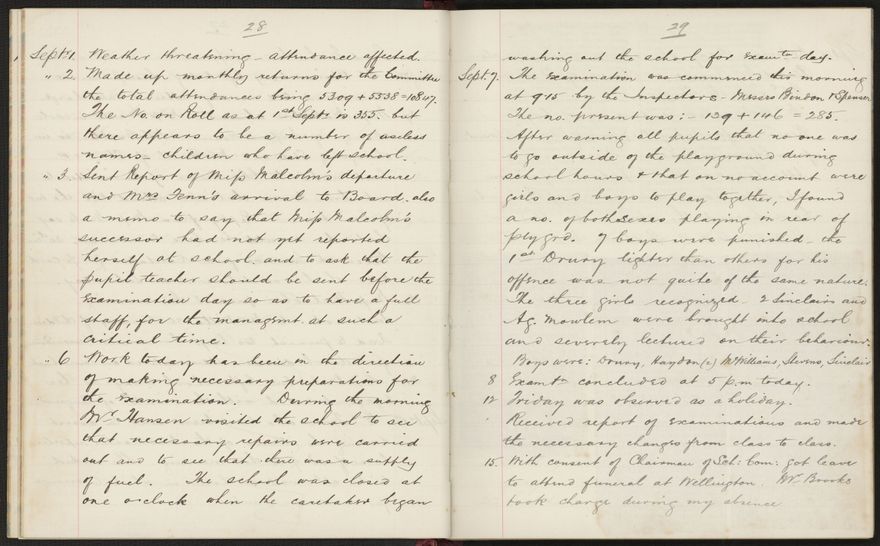 28
Septr 1. Weather threatning - attendance affected.
" 2. Made up monthly returns for the Committee
the total attendances being 5309 + 5538 = 10847.
The No. on Roll as at 1st Septr is 355. but
there appears to be a number of useless
names - children who have left school.
" 3. Sent Report of Miss Malcolm's departure
and Mrs Fenn's arrival to Board. also
a memo to say that Miss Malcolm's
successor had not yet reported
herself at school. and to ask that the
pupil teacher should be sent before the
Examination day so as to have a full
staff, for the managmt. at such a
critical time.
" 6 Work to day has been in the direction
of making necessary preparations for
the examination. During the morning
Mr Hansen visited the school to see
that necessary repairs were carried
out and to see that there was a supply
of fuel. The school was closed at
one o-clock when the caretaker began
29
washing out the school for examtn day.
Sept. 7. The Examination was commenced this morning
at 9.15 by the Inspectors - Messrs Bindon & Spencer
The no. present was: - 139 + 146 = 285.
After warning all pupils that no one was
to go outside of the playground during
school hours & that on no account were
girls and boys to play together, I found
a no. of both sexes playing in rear of
plygrd. 7 boys were punished - the
1st Drury lighter than others for his
offence was not quite of the same nature.
The three girls recognized - 2 Sinclairs and
Ag. Mowlem were brought into school
and severely lectured on their behaviour.
Boys were: Drury, Haydon (2) McWilliams, Stevens, Sinclair
8 Examtn concluded at 5 p.m today.
12 Friday was observed as a holiday.
Received report of examinations and made
the necessary changes from class to class.
15. With consent of Chairman of Sch: Com: got leave
to attend funeral at Wellington. Mr Brooks
took charge during my absence